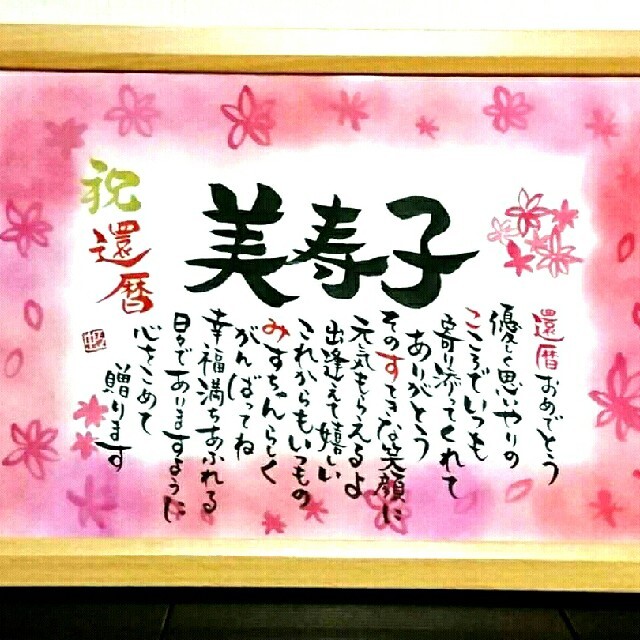 祝
還暦
美寿子
還暦おめでとう
優しと思いやりの
こころでいつも
寄り添ってくれて
ありがとう
そのすてきな笑顔に
元気もらえるよ
出逢えて嬉しい
これからもいつもの
みすちゃんらしく
がんばってね
幸福満ちあふれる
日々でありますように
心をこめて
贈ります